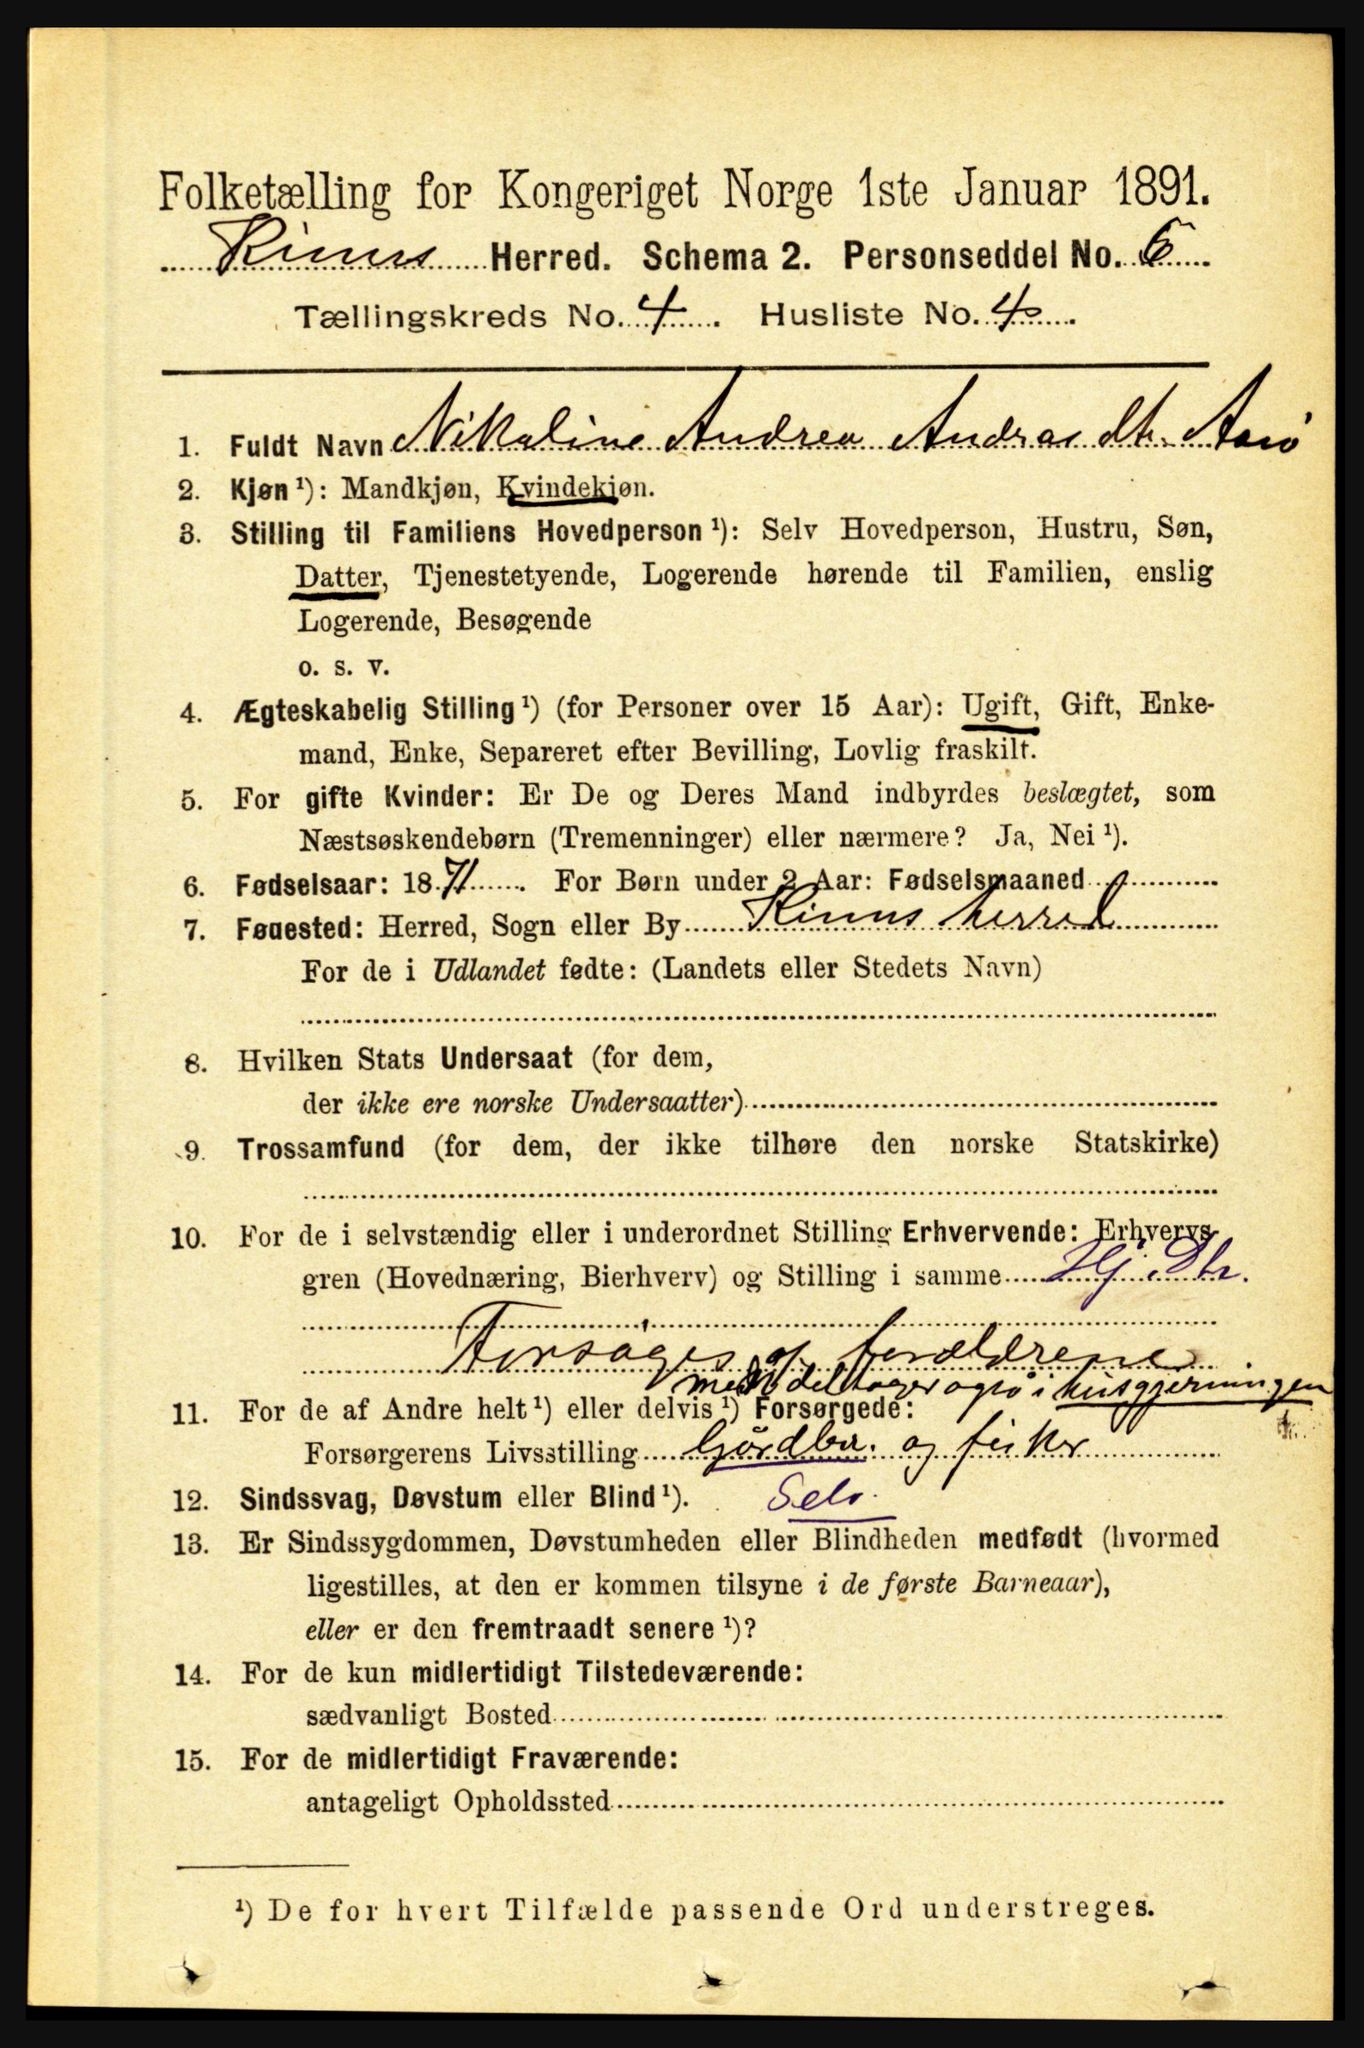 Folketælling for Kongeriget Norge 1ste Januar 1891.
Kinns Herred. Schema 2. Personseddel No. 6
Tællingskreds No. 4. Husliste No. 4
1. Fuldt Navn Nikoline Andrea Andrasdtr. Aarø
2. Kjøn ¹): Mandkjøn, Kvindekjøn.
3. Stilling til Familiens Hovedperson ¹): Selv Hovedperson, Hustru, Søn,
Datter, Tjenestetyende, Logerende hørende til Familien, enslig
Logerende, Besøgende
o. s. v.
4. Ægteskabelig Stilling ¹) (for Personer over 15 Aar): Ugift, Gift, Enke-
mand, Enke, Separeret efter Bevilling, Lovlig fraskilt.
5. For gifte Kvinder: Er De og Deres Mand indbyrdes beslægtet, som
Næstsøskendebørn (Tremenninger) eller nærmere? Ja, Nei ¹).
6. Fødselsaar: 1871. For Børn under 2 Aar: Fødselsmaaned
7. Føuested: Herred, Sogn eller By Kinns herred
For de i Udlandet fødte: (Landets eller Stedets Navn)
8. Hvilken Stats Undersaat (for dem,
der ikke ere norske Undersaatter)
9. Trossamfund (for dem, der ikke tilhøre den norske Statskirke)
10. For de i selvstændig eller i underordnet Stilling Erhvervende: Erhvervs-
gren (Hovednæring, Bierhverv) og Stilling i samme Hj. Dtr.
Forsøges af forældrene
men deltager ogsø i husgjerningen
11. For de af Andre helt ¹) eller delvis ¹) Forsørgede:
Forsørgerens Livsstilling Gørdbr. og fisker
12. Sindssvag, Døvstum eller Blind ¹). Selv.
13. Er Sindssygdommen, Døvstumheden eller Blindheden medfødt (hvormed
ligestilles, at den er kommen tilsyne i de første Barneaar),
eller er den fremtraadt senere ¹)?
14. For de kun midlertidigt Tilstedeværende:
sædvanligt Bosted
15. For de midlertidigt Fraværende:
antageligt Opholdssted
¹) De for hvert Tilfælde passende Ord understreges.